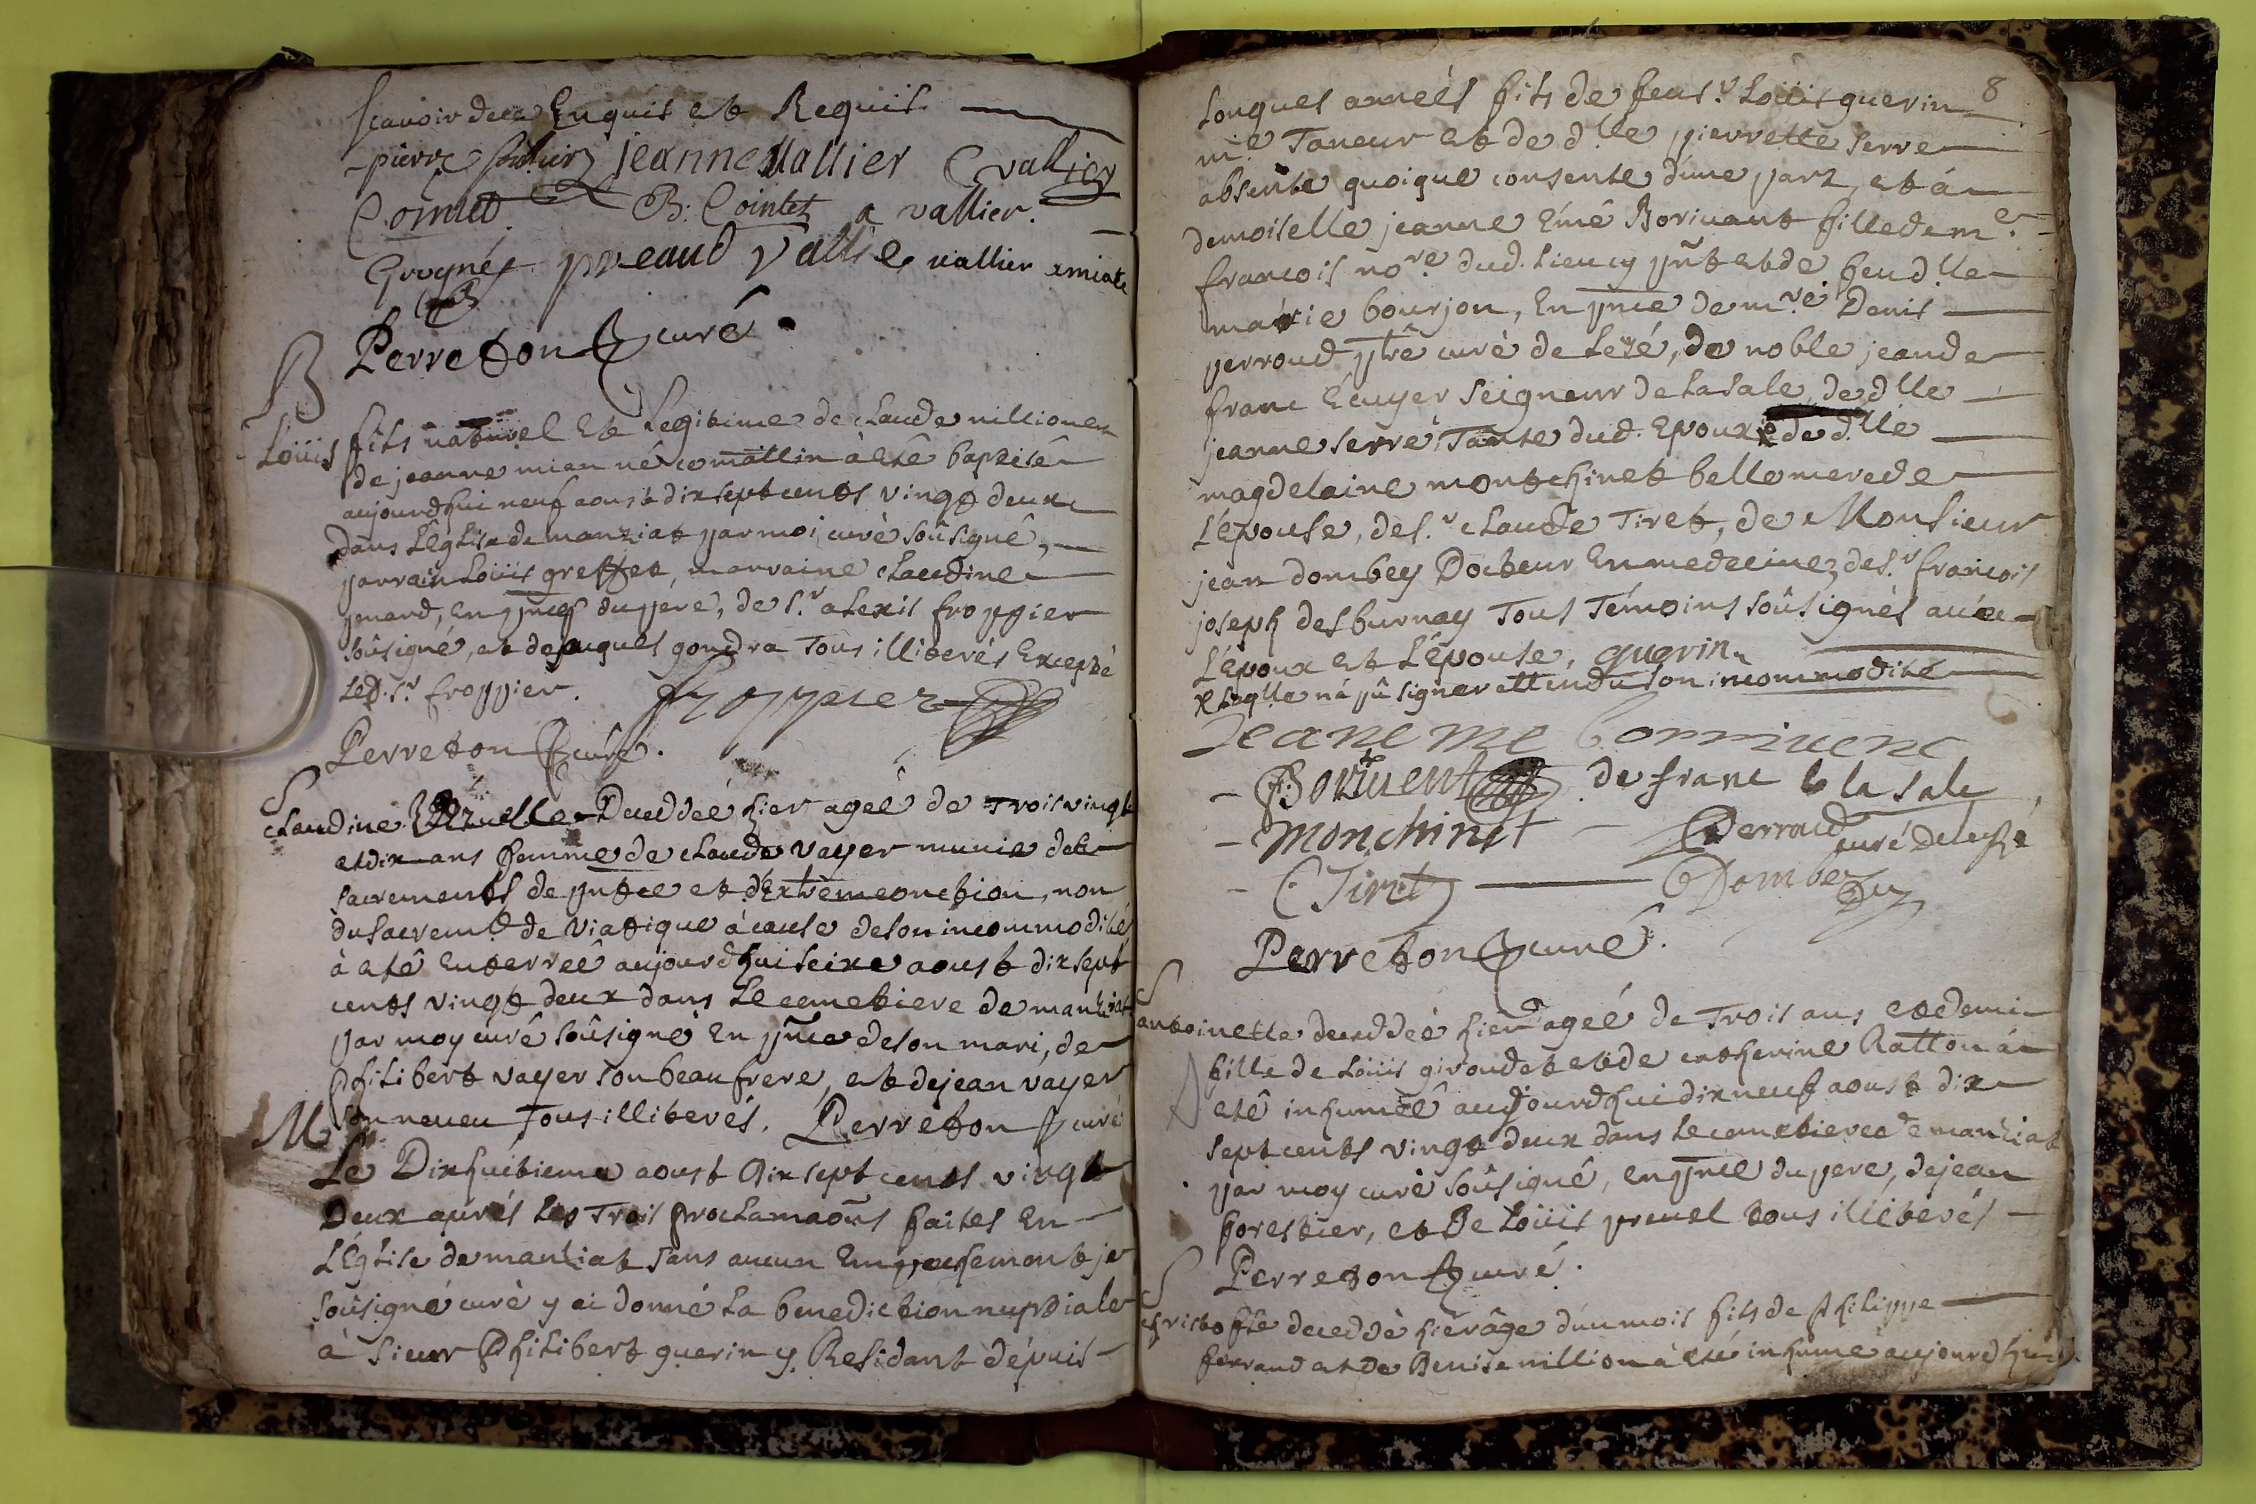 scavoir deez Enquis et Requis
pierre jeanne vallier C vallier
Cointet B: Cointet a vallier.
Groynés preaud vallie vallier amiate
Perreton curé.
B
Loüis fils naturel et Legitime de claude nillion et
de jeanne mian né ce mattin à eté baptisé
aujourdhui neuf aoust dix sept cents vingt deux
dans L'églize de manziat par moi curé soûsigné,
parrain Loüis greffet, marraine claudine
penard, en pñces du pere, de s.r alexis froppier
soûsigné, et de jaques gondra Tous illiterés Excepté
Led. s.r froppier. froppier
Perreton curé.
S
claudine Deceddeé hier ageé de Trois vingt
et dix ans femme de claude vayer munie des
sacrements de pñtce et d'Extrêmeonction, non
du sacrem.t de viatique à cause de son incommodité
à eté enterreé aujourdhui seixe aoust dix sept
cents vingt deux dans Le cemetiere de manziat
par moy curé soûsigné En pñce de son mari, de
philibert vayer son beaufrere, et de jean vayer
son neveu Tous illiterés. Perreton curé
M
Le Dixhuitieme aoust dix sept cents vingt
Deux aprés les Trois proclamaons faites En
L'Église de manziat sans aucun Empechement je
soûsigné curé y ai donné La benediction nuptiale
à sieur Philibert guerin y Residant dépuis
8
Longues anneés fils de feu s.r Loüis guerin
m.e Taneur et de d.lle pierrette serre
absente quoique consente d'une part, et à
demoiselle jeanne Emé Borivant fille de m.e
francois no.re dud. Lieu cy pñt et de feu d.lle
marie bourjon, En pñce de m.re Denis
perroud, ptre curé de Lezé, de noble jean de
franc Ecuyer seigneur de La sale, de d.lle
jeanne serré Tante dud. Epoux x de d.lle
magdelaine montchinet belle mere de
L'épouse, de s.r claude Tiret, de Monsieur
jean dombey Docteur En medecine, de s.r francois
joseph desburnay Tous Témoins soûsignés avec
L'Epoux et L'Epouse, guerin
x Laq.lle n'a pû signer attendu son incommodité
Jeane me borrivent
Borivent de franc la sale
Monchinet Perroud curé de Lezé
C Tiret Dombey
Perreton curé.
S
antoinette deceddeé hier ageé de Trois ans et demi
fille de Loüis giroudet et de catherine Ratton à
eté inhumeé aujourdhui dixneuf aoust dix
sept cents vingt deux dans Le cemetiere de manziat
par moy curé soûsigné, en pñce du pere, de jean
forestier, et de Loüis prevel tous illiterés
Perreton curé.
S
christofle deceddé hier âgé d'un mois fils de philippe
ferrand et de Denise nillion à eté inhumé aujourdhui